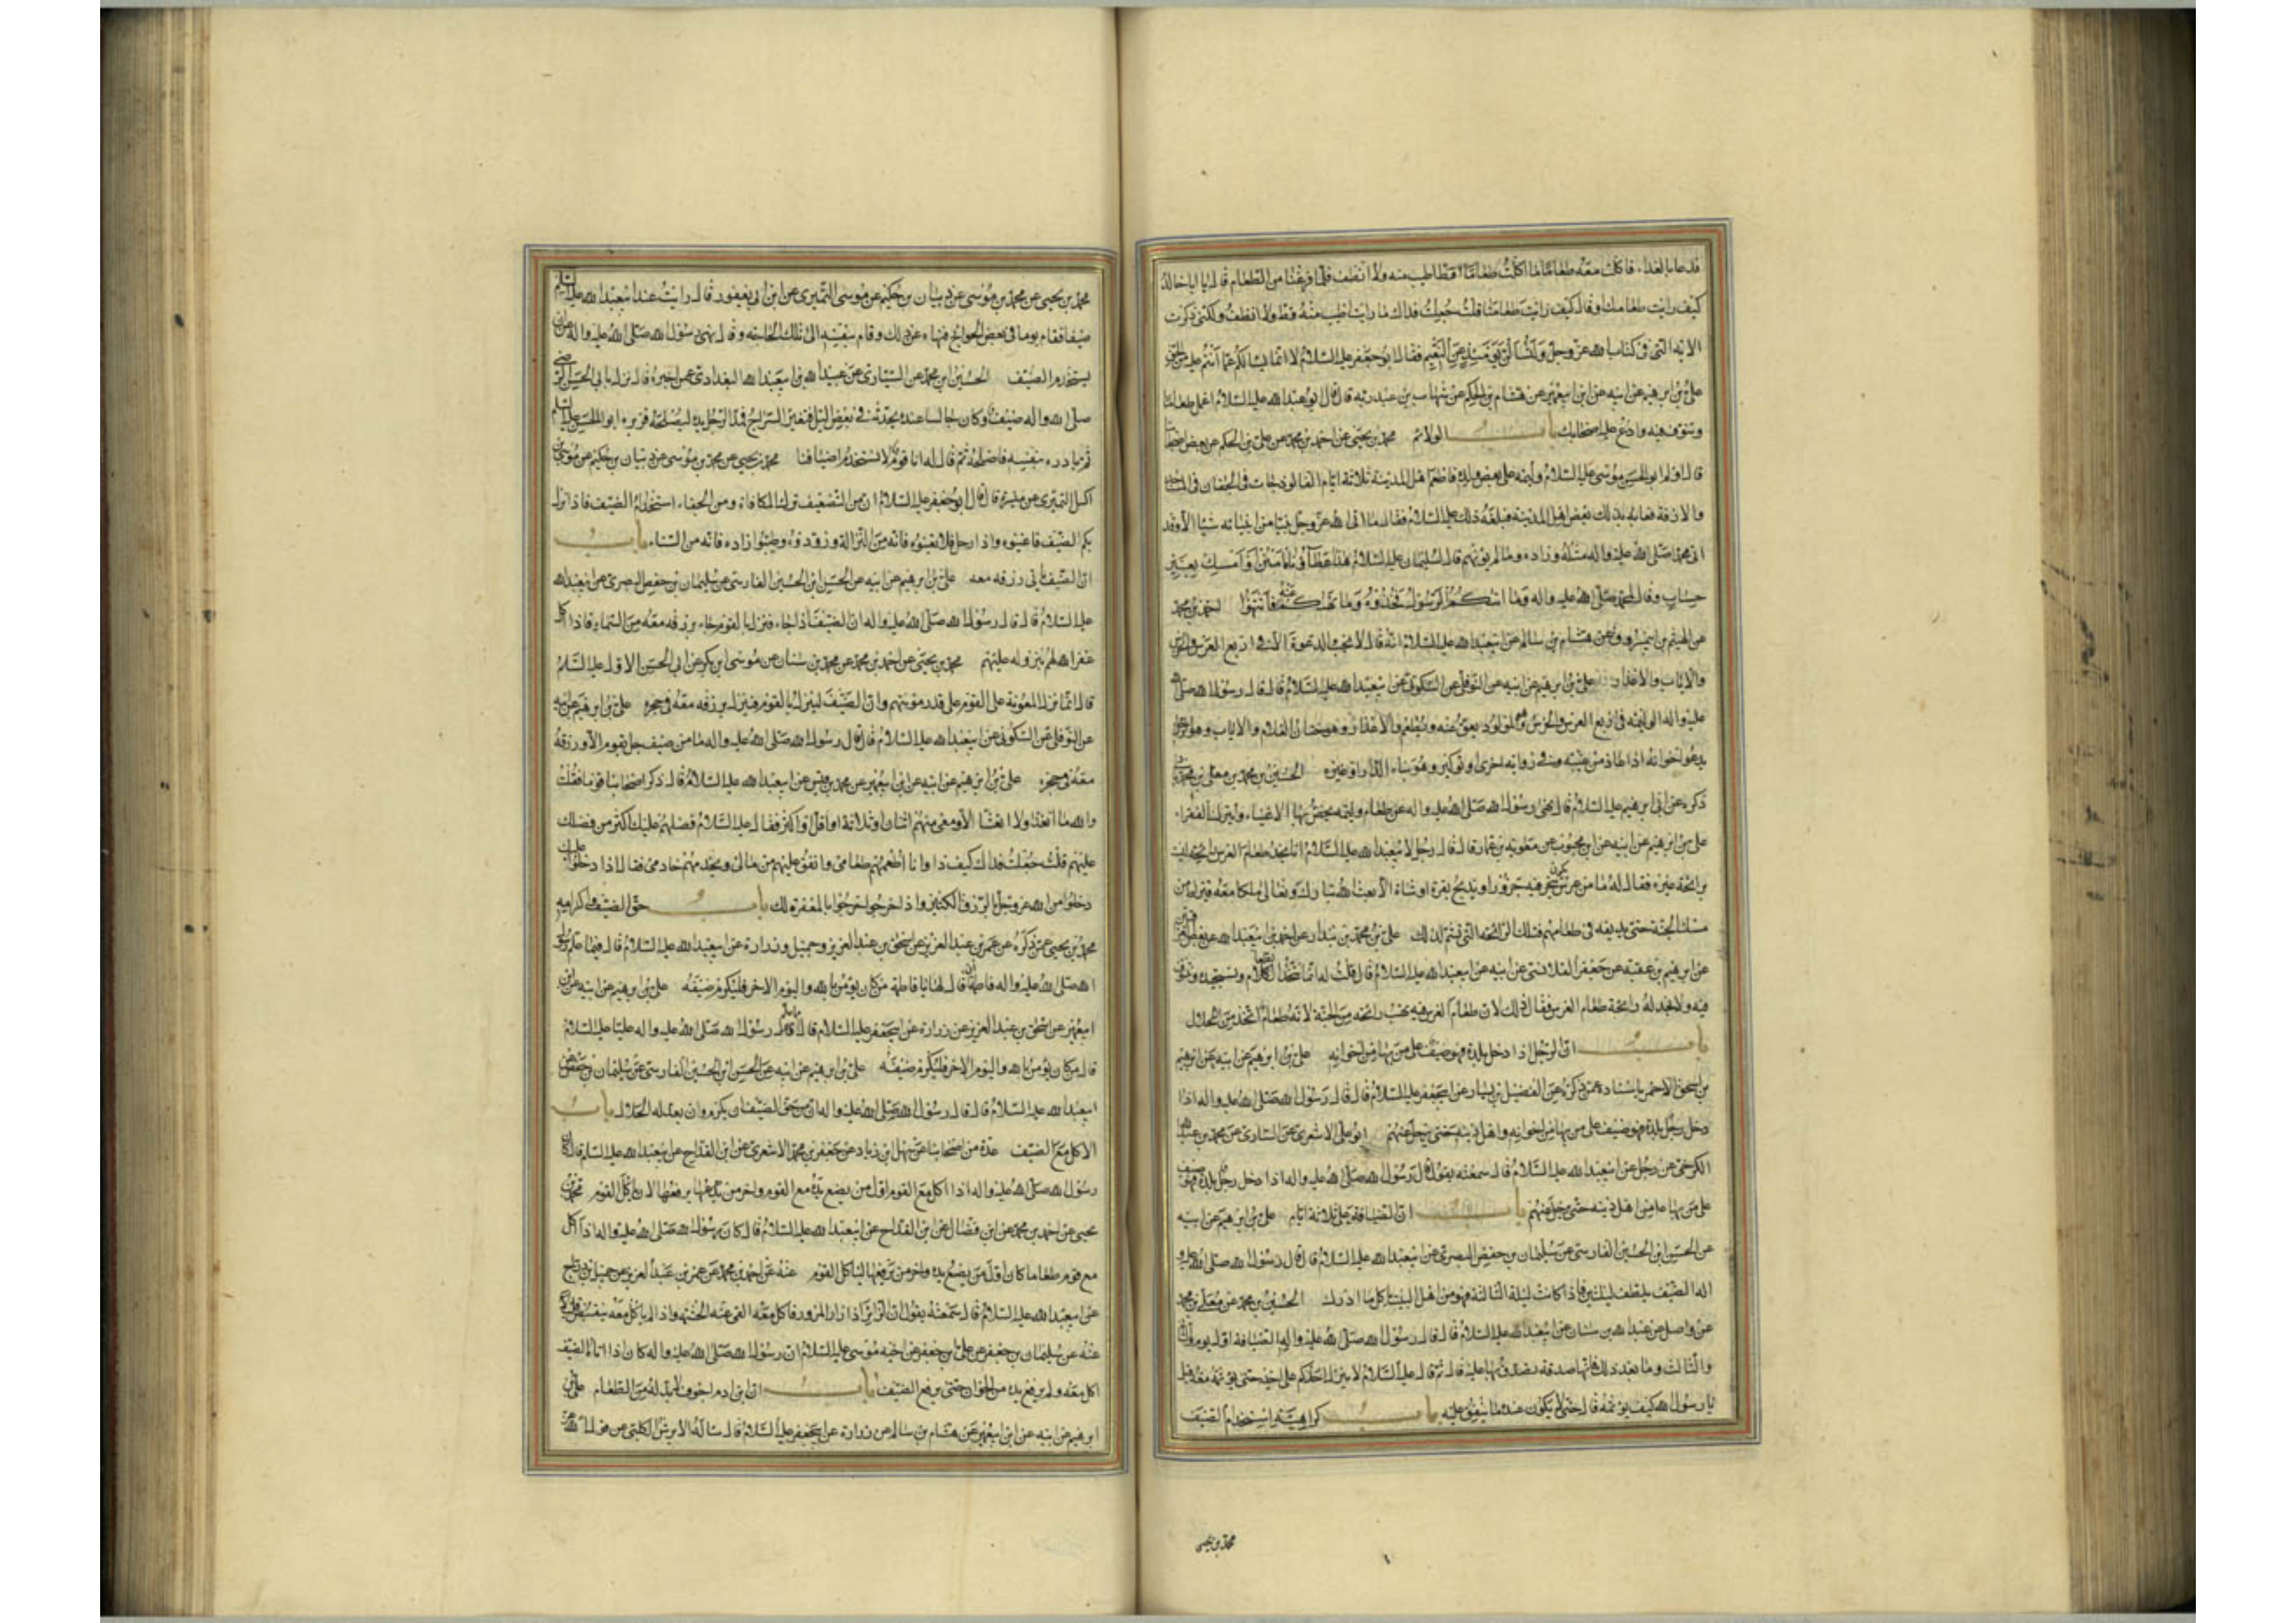 فدعا بالغداء فاكلت معه طعاما ما اكلت طعاما قط اطيب منه ولا انظف فلما فرغنا من الطعام قال يا ابا خالد
كيف رايت طعامك او قال كيف رايت طعامنا قلت جعلت فداك ما رايت اطيب منه قط ولا انظف ولكنى ذكرت
الايه التى فى كتاب الله عز وجل ولتسألن يومئذ عن النعيم فقال ابو جعفر عليه السلام لا انما يسالكم عما انتم عليه من الحق
على بن ابرهيم عن ابيه عن ابن ابى عمير عن هشام بن الحكم عن شهاب بن عبد ربه قال قال ابو عبد الله عليه السلام اعمل طعاما
وتنوق فيه وادع عليه اصحابك باب الولائم محمد بن يحيى عن احمد بن محمد عن على بن الحكم عن بعض اصحابنا
قال اولم ابو الحسن موسى عليه السلام وليمه على بعض ولده فاطعم اهل المدينة ثلاثة ايام الفالوذجات فى الجفان فى المساجد
والازقة فعابه بذلك بعض اهل المدينة فبلغه ذلك عليه السلام فقال ما اتى الله عز وجل نبيا من انبيائه شيئا الا وقد
اتى محمدا صلى الله عليه واله مثله وزاده ما لم يؤتهم قال لسليمان عليه السلام هذا عطاؤنا فامنن او امسك بغير
حساب وقال لمحمد صلى الله عليه واله وما اتيكم الرسول فخذوه وما نهيكم عنه فانتهوا احمد بن محمد
عن الهيثم بن ابى مسروق عن هشام بن سالم عن ابى عبد الله عليه السلام انه قال لا تجب الدعوة الا فى اربع العرس والخرس
والاياب والاعذار على بن ابرهيم عن ابيه عن النوفلى عن السكونى عن ابى عبد الله عليه السلام قال قال رسول الله صلى الله
عليه واله الوليمه فى اربع العرس والخرس وهو المولود يعق عنه ويطعم والاعذار وهو ختان الغلام والاياب وهو الرجل
يدعو اخوانه اذا اب من غيبته وفى رواية اخرى او توكير وهو بناء الدار او غيره الحسين بن محمد عن معلى بن محمد
ذكره عن ابى ابرهيم عليه السلام قال نهى رسول الله صلى الله عليه واله عن طعام وليمه يخص بها الاغنياء ويترك الفقراء
على بن ابرهيم عن ابيه عن ابن محبوب عن معوية بن عمار قال قال رجل لابى عبد الله عليه السلام انا نجد لطعام العرس رائحة ليست
برائحة غيره فقال له ما من عرس يكون ينحر فيه جزور او يذبح بقرة او شاة الا بعث الله تبارك وتعالى ملكا معه قيراط من
مسك الجنة حتى يديفه فى طعامهم فتلك الرائحة التى تشم لذلك على بن محمد بن بندار عن احمد بن ابى عبد الله عن بعض
عن ابرهيم بن عقبة عن جعفر القلانسى عن ابيه عن ابى عبد الله عليه السلام قال قلت له انما نتخذ الطعام ونستجيده ونتنوق
فيه ولا نجد له رائحة طعام العرس فقال ذلك لان طعام العرس فيه تهب رائحة من الجنة لانه طعام اتخذ من الحلال
باب ان الرجل اذا دخل بلدة فهو ضيف على من بها من اخوانه على بن ابرهيم عن ابيه عن ابرهيم
بن اسحق الاحمر باسناده عمن ذكره عن الفضيل بن يسار عن ابى جعفر عليه السلام قال قال رسول الله صلى الله عليه واله اذا
دخل رجل بلدة فهو ضيف على من بها من اخوانه واهل دينه حتى يرحل عنهم ابو على الاشعرى عن السيارى عن محمد بن عبد الله
الكرخى عن رجل عن ابى عبد الله عليه السلام قال سمعته يقول قال رسول الله صلى الله عليه واله اذا دخل رجل بلدة فهو ضيف
على من بها من اهل دينه حتى يرحل عنهم باب ان الضيافة ثلاثة ايام على بن ابرهيم عن ابيه
عن الحسن ابن الحسين الفارسى عن سليمان بن حفص البصرى عن ابى عبد الله عليه السلام قال قال رسول الله صلى الله عليه و
اله الضيف يلطف ليلتين فاذا كانت ليلة الثالثة فهو من اهل البيت ياكل ما ادرك الحسين بن محمد عن معلى بن محمد
عن واصل عن عبد الله بن سنان عن ابى عبد الله عليه السلام قال قال رسول الله صلى الله عليه واله الضيافة اول يوم والثانى
والثالث وما بعد ذلك فانها صدقة تصدق بها عليه قال ثم قال عليه السلام لا ينزل احدكم على اخيه حتى يؤثمه معه قيل
يا رسول الله كيف يؤثمه قال حتى لا يكون عنده ما ينفق عليه باب كراهية استخدام الضيف
محمد بن يحيى
محمد بن يحيى عن محمد بن موسى عن ذبيان بن حكيم عن موسى النميرى عن ابن ابى يعفور قال رايت عند ابى عبد الله عليه السلام
ضيفا فقام يوما فى بعض الحوائج فنهاه عن ذلك وقام بنفسه الى تلك الحاجه وقال نهى رسول الله صلى الله عليه واله عن ان
يستخدم الضيف الحسين ابن محمد عن السيارى عن عبيد الله بن ابى عبد الله البغدادى عمن اخبره قال نزل بابى الحسن الرضا
صلى الله واله ضيف وكان جالسا عنده يحدثه فى بعض الليل فتغير السراج فمد الرجل يده ليصلحه فزبره ابو الحسن عليه السلام
ثم بادره بنفسه فاصلحه ثم قال له انا قوم لا نستخدم اضيافنا محمد بن يحيى عن محمد بن موسى عن ذبيان بن حكيم عن موسى
اكيل النميرى عن ميسرة قال قال ابو جعفر عليه السلام ان من التضعيف ترك المكافاة ومن الجفاء استخدام الضيف فاذا نزل
بكم الضيف فاعينوه واذا ارتحل فلا تعينوه فانه من النزالة وزودوه وطيبوا زاده فانه من السخاء باب
ان الضيف ياتى رزقه معه على بن ابرهيم عن ابيه عن الحسن ابن الحسين الفارسى عن سليمان بن حفص البصرى عن ابى عبد الله
عليه السلام قال قال رسول الله صلى الله عليه واله ان الضيف اذا جاء فنزل بالقوم جاء برزقه معه من السماء فاذا اكل
غفر الله لهم بنزوله عليهم محمد بن يحيى عن احمد بن محمد عن محمد بن سنان عن موسى ابن بكر عن ابى الحسن الاول عليه السلام
قال انما تنزل المعونة على القوم على قدر مؤنتهم وان الضيف لينزل بالقوم فينزل برزقه معه فى حجره على بن ابرهيم عن ابيه
عن النوفلى عن السكونى عن ابى عبد الله عليه السلام قال قال رسول الله صلى الله عليه واله ما من ضيف حل بقوم الا ورزقه
معه فى حجره على بن ابرهيم عن ابيه عن ابن ابى عمير عن محمد بن قيس عن ابى عبد الله عليه السلام قال ذكر اصحابنا قوما فقلت
والله ما اتغدى ولا اتعشا الا ومعى منهم اثنان او ثلاثة او اقل او اكثر فقال عليه السلام فضلهم عليك اكثر من فضلك
عليهم قلت جعلت فداك كيف ذا وانا اطعمهم طعامى وانفق عليهم من مالى ويخدمهم خادمى فقال اذا دخلوا عليك
دخلوا من الله عز وجل بالرزق الكثير واذا خرجوا خرجوا بالمغفرة لك باب حق الضيف واكرامه
محمد بن يحيى عمن ذكره عن عمر بن عبد العزيز عن اسحق بن عبد العزيز وجميل وزرارة عن ابى عبد الله عليه السلام قال فيما علم رسول
الله صلى الله عليه واله فاطمة ان قال لها يا فاطمة من كان يؤمن بالله واليوم الاخر فليكرم ضيفه على بن ابرهيم عن ابيه عن ابن
ابى عمير عن اسحق بن عبد العزيز عن زرارة عن ابى جعفر عليه السلام قال مما علم رسول الله صلى الله عليه واله عليا عليه السلام
قال من كان يؤمن بالله واليوم الاخر فليكرم ضيفه على بن ابرهيم عن ابيه عن الحسن ابن الحسين الفارسى عن سليمان بن حفص عن
ابى عبد الله عليه السلام قال قال رسول الله صلى الله عليه واله ان من حق الضيف ان يكرم وان يعد له الخلال باب
الاكل مع الضيف عدة من اصحابنا عن سهل ابن زياد عن جعفر بن محمد الاشعرى عن ابن القداح عن ابى عبد الله عليه السلم قال كان
رسول الله صلى الله عليه واله اذا اكل مع القوم اول من يضع يده مع القوم واخر من يرفعها لان ياكل القوم محمد بن
يحيى عن احمد بن محمد عن ابن فضال عن ابن القداح عن ابى عبد الله عليه السلام قال كان رسول الله صلى الله عليه واله اذا اكل
مع قوم طعاما كان اول من يضع يده واخر من يرفعها لياكل القوم عنه عن احمد بن محمد عن عمر بن عبد العزيز عن جميل بن دراج
عن ابى عبد الله عليه السلام قال سمعته يقول ان الزائر اذا زار المزور فاكل معه القى عنه الحشمة واذا لم ياكل معه ينقبض قليلا
عنه عن سليمان بن جعفر عن على بن جعفر عن اخيه موسى عليه السلام ان رسول الله صلى الله عليه واله كان اذا اتاه الضيف
اكل معه ولم يرفع يده من الخوان حتى يرفع الضيف باب ان ابن ادم اجوف لابد له من الطعام على بن
ابرهيم عن ابيه عن ابن ابى عمير عن هشام بن سالم عن زرارة عن ابى جعفر عليه السلام قال ساله الابرش الكلبى عن قول الله عز